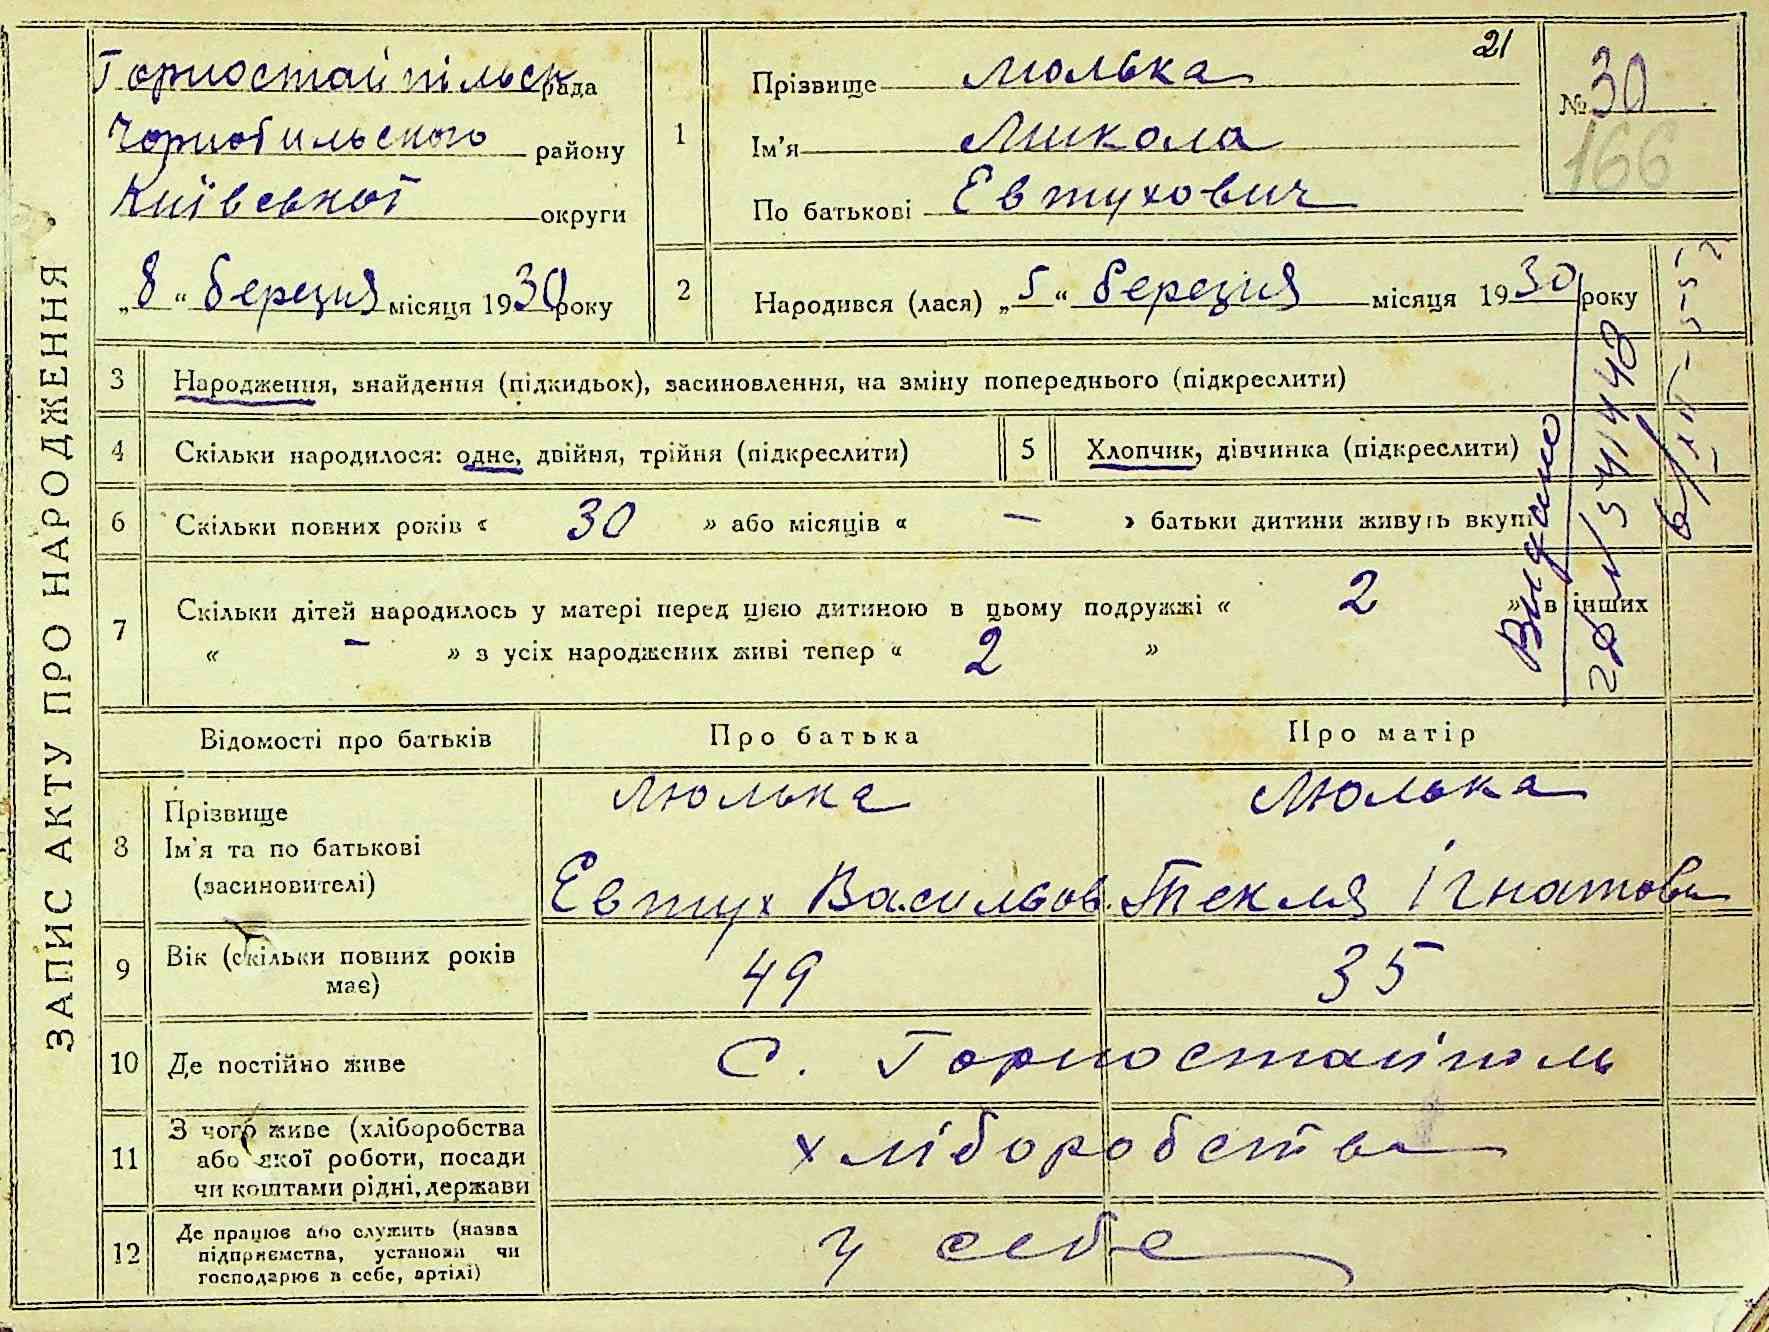 ЗАПИС АКТУ ПРО НАРОДЖЕННЯ
Горностайпільськ рада
Чорнобильського району
Київської округи
„8“ березня місяця 1930 року
21
1 Прізвище Люлька
Ім'я Микола
По батькові Евтухович
№ 30
166
2 Народився (лася) „5“ березня місяця 1930 року
3 Народження, знайдення (підкидьок), засиновлення, на зміну попереднього (підкреслити)
4 Скільки народилося: одне, двійня, трійня (підкреслити)
5 Хлопчик, дівчинка (підкреслити)
6 Скільки повних років « 30 » або місяців « – » батьки дитини живуть вкупі
7 Скільки дітей народилось у матері перед цією дитиною в цьому подружжі « 2 » в інших
« – » з усіх народжених живі тепер « 2 »
Видано
Відомості про батьків Про батька Про матір
8 Прізвище
Ім'я та по батькові
(засиновителі)
Люлька Люлька
Евтух Васильов. Текля Ігнатовн
9 Вік (скільки повних років
має)
49 35
10 Де постійно живе С. Горностайпіль
11 З чого живе (хліборобства
або якої роботи, посади
чи коштами рідні, держави
хліборобства
12 Де працює або служить (назва
підприємства, установи чи
господарює в себе, артілі)
у себе